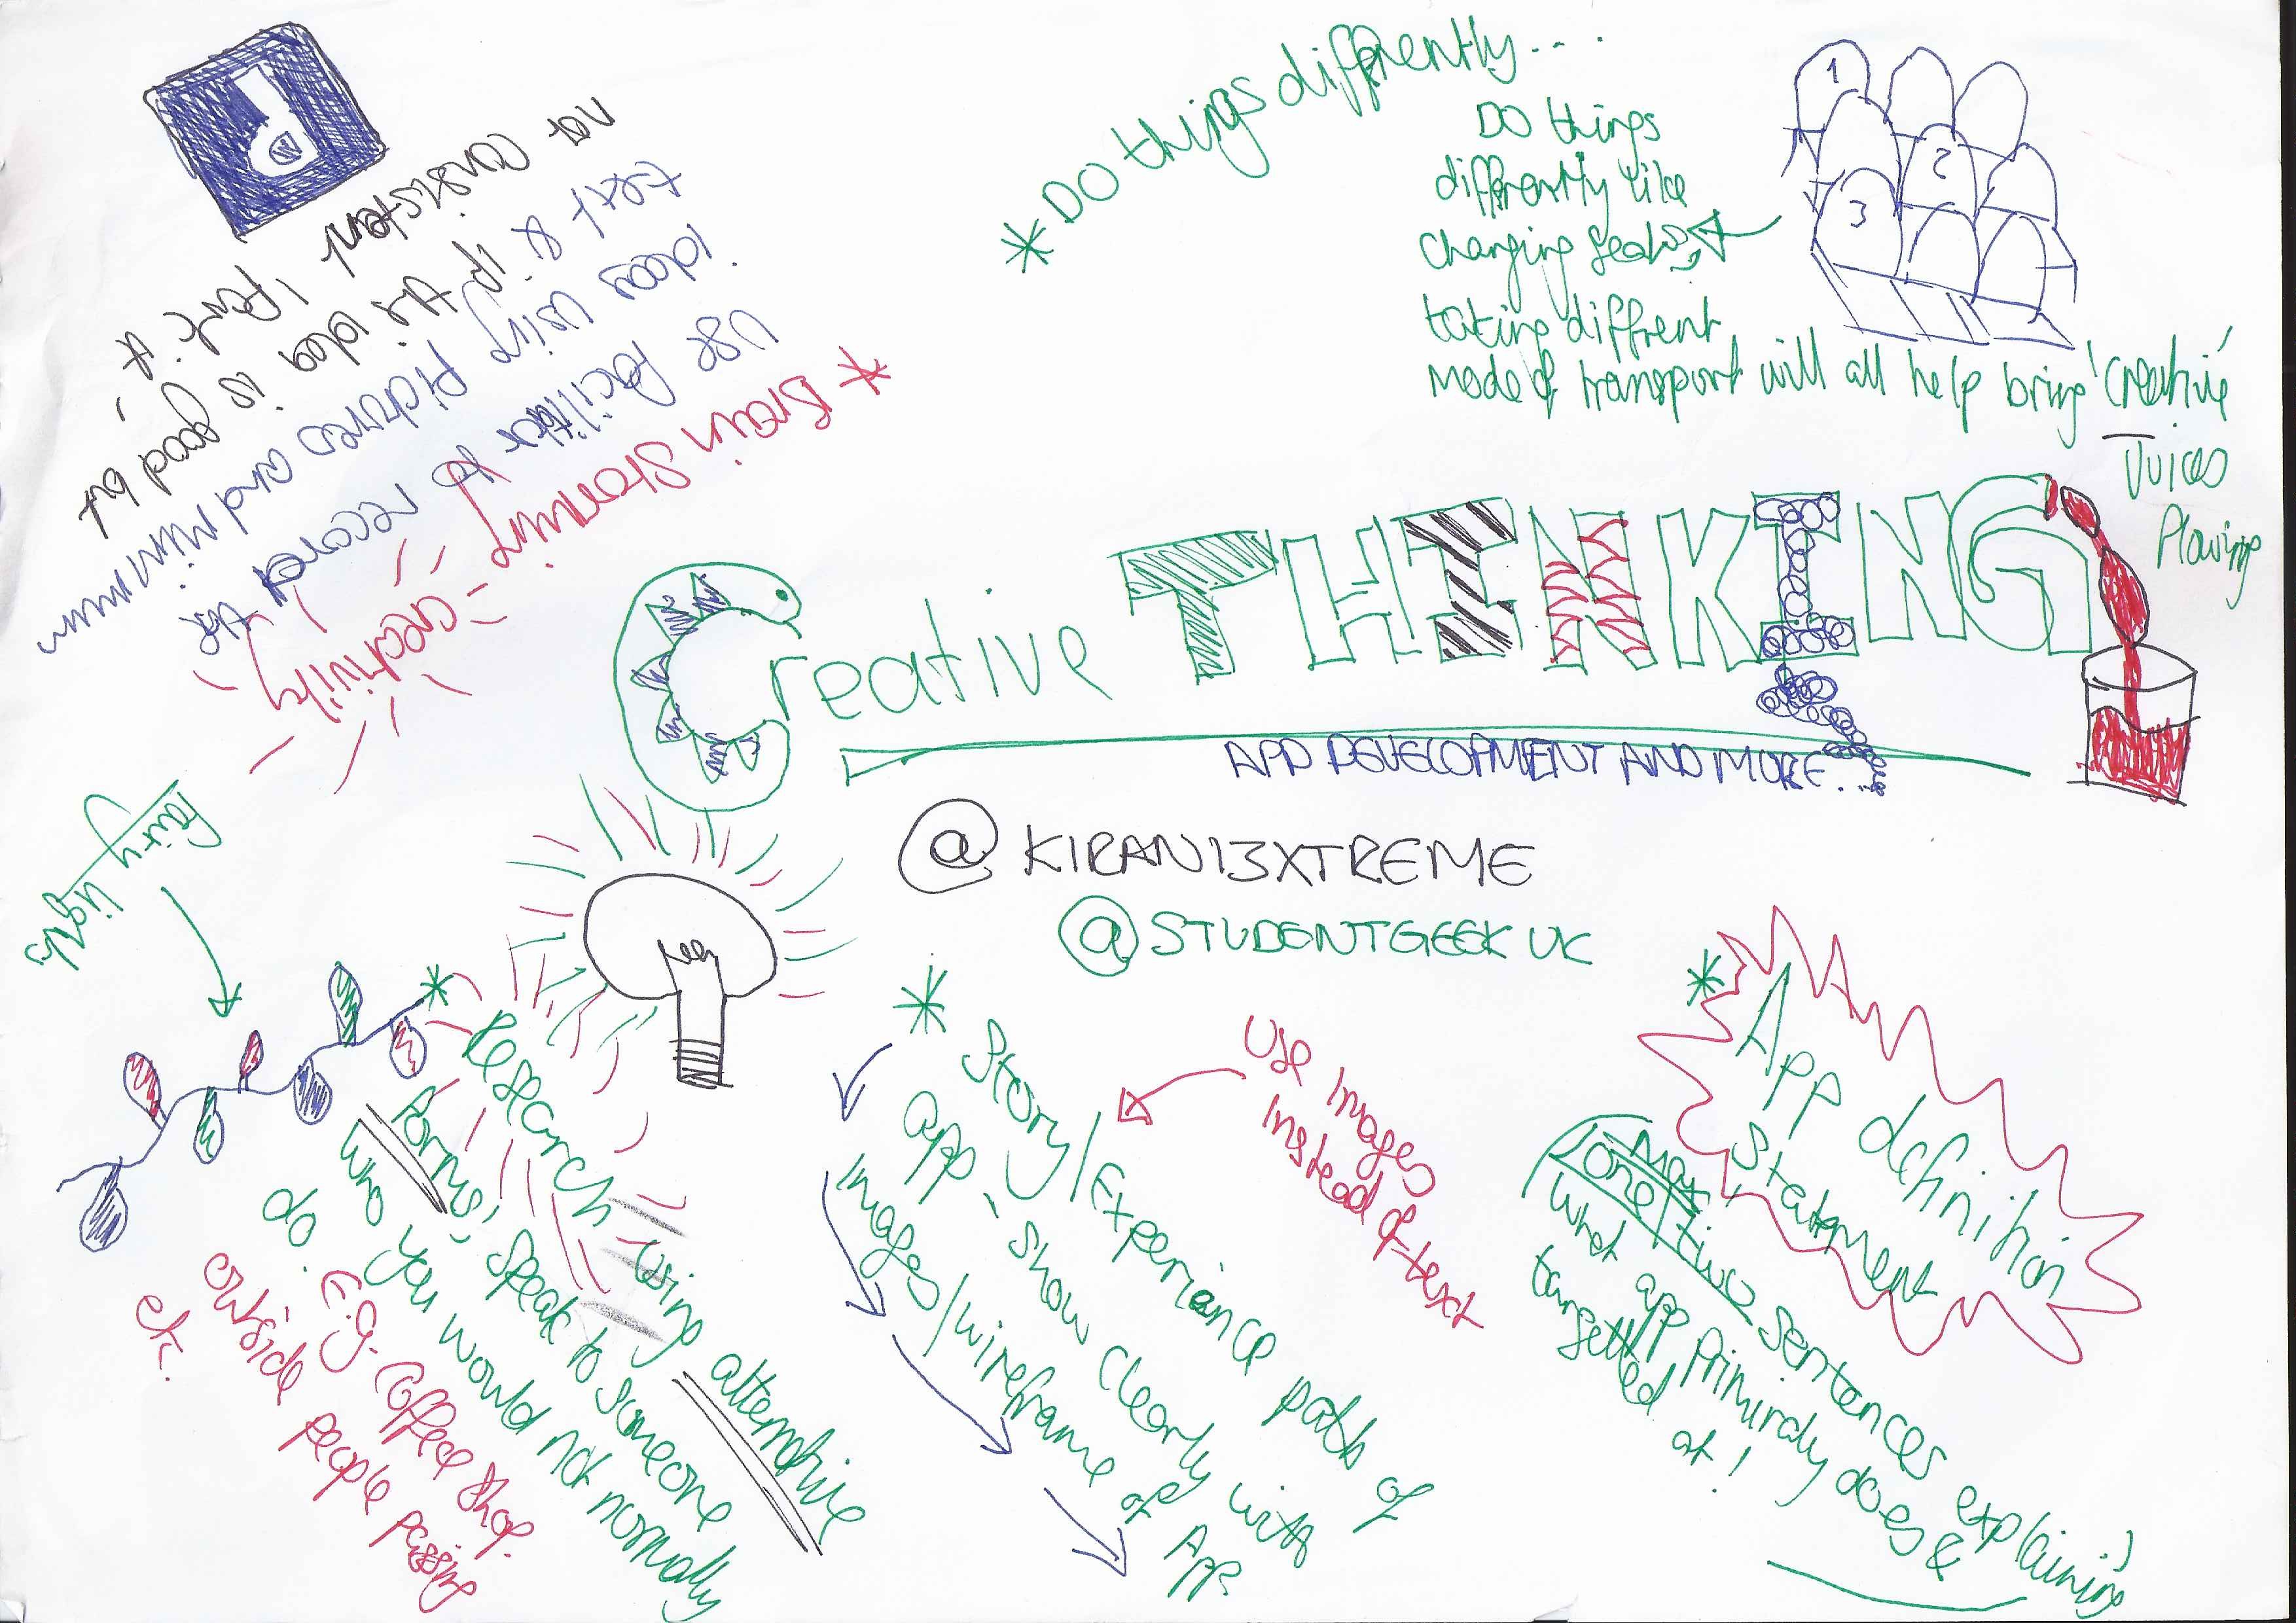 *DO things differently....
DO things
differently like
changing seats,
taking diffrent
mode of transport will all help bring 'creative'
Juices
Flowing
1
2
3
* Brain Storming
use facilitor to record the
ideas using pictures and minimum
text & if the idea is good but
not consistent 'Park it'
creativity
Creative THINKING
APP DEVELOPMENT AND MORE...
@KIRAN13XTREME
@STUDENTGEEKUK
fairy lights
* Research using alternative
forms, speak to someone
who you would not normally
do. E.g. Coffee shop.
outside people passing
etc.
* Story/Experiance path of
app, show clearly with
images/wireframe of App.
Use images
instead of text
* App definition
Statement
Max
one/two sentences explaining
what app Primiraly does &
targetted at!